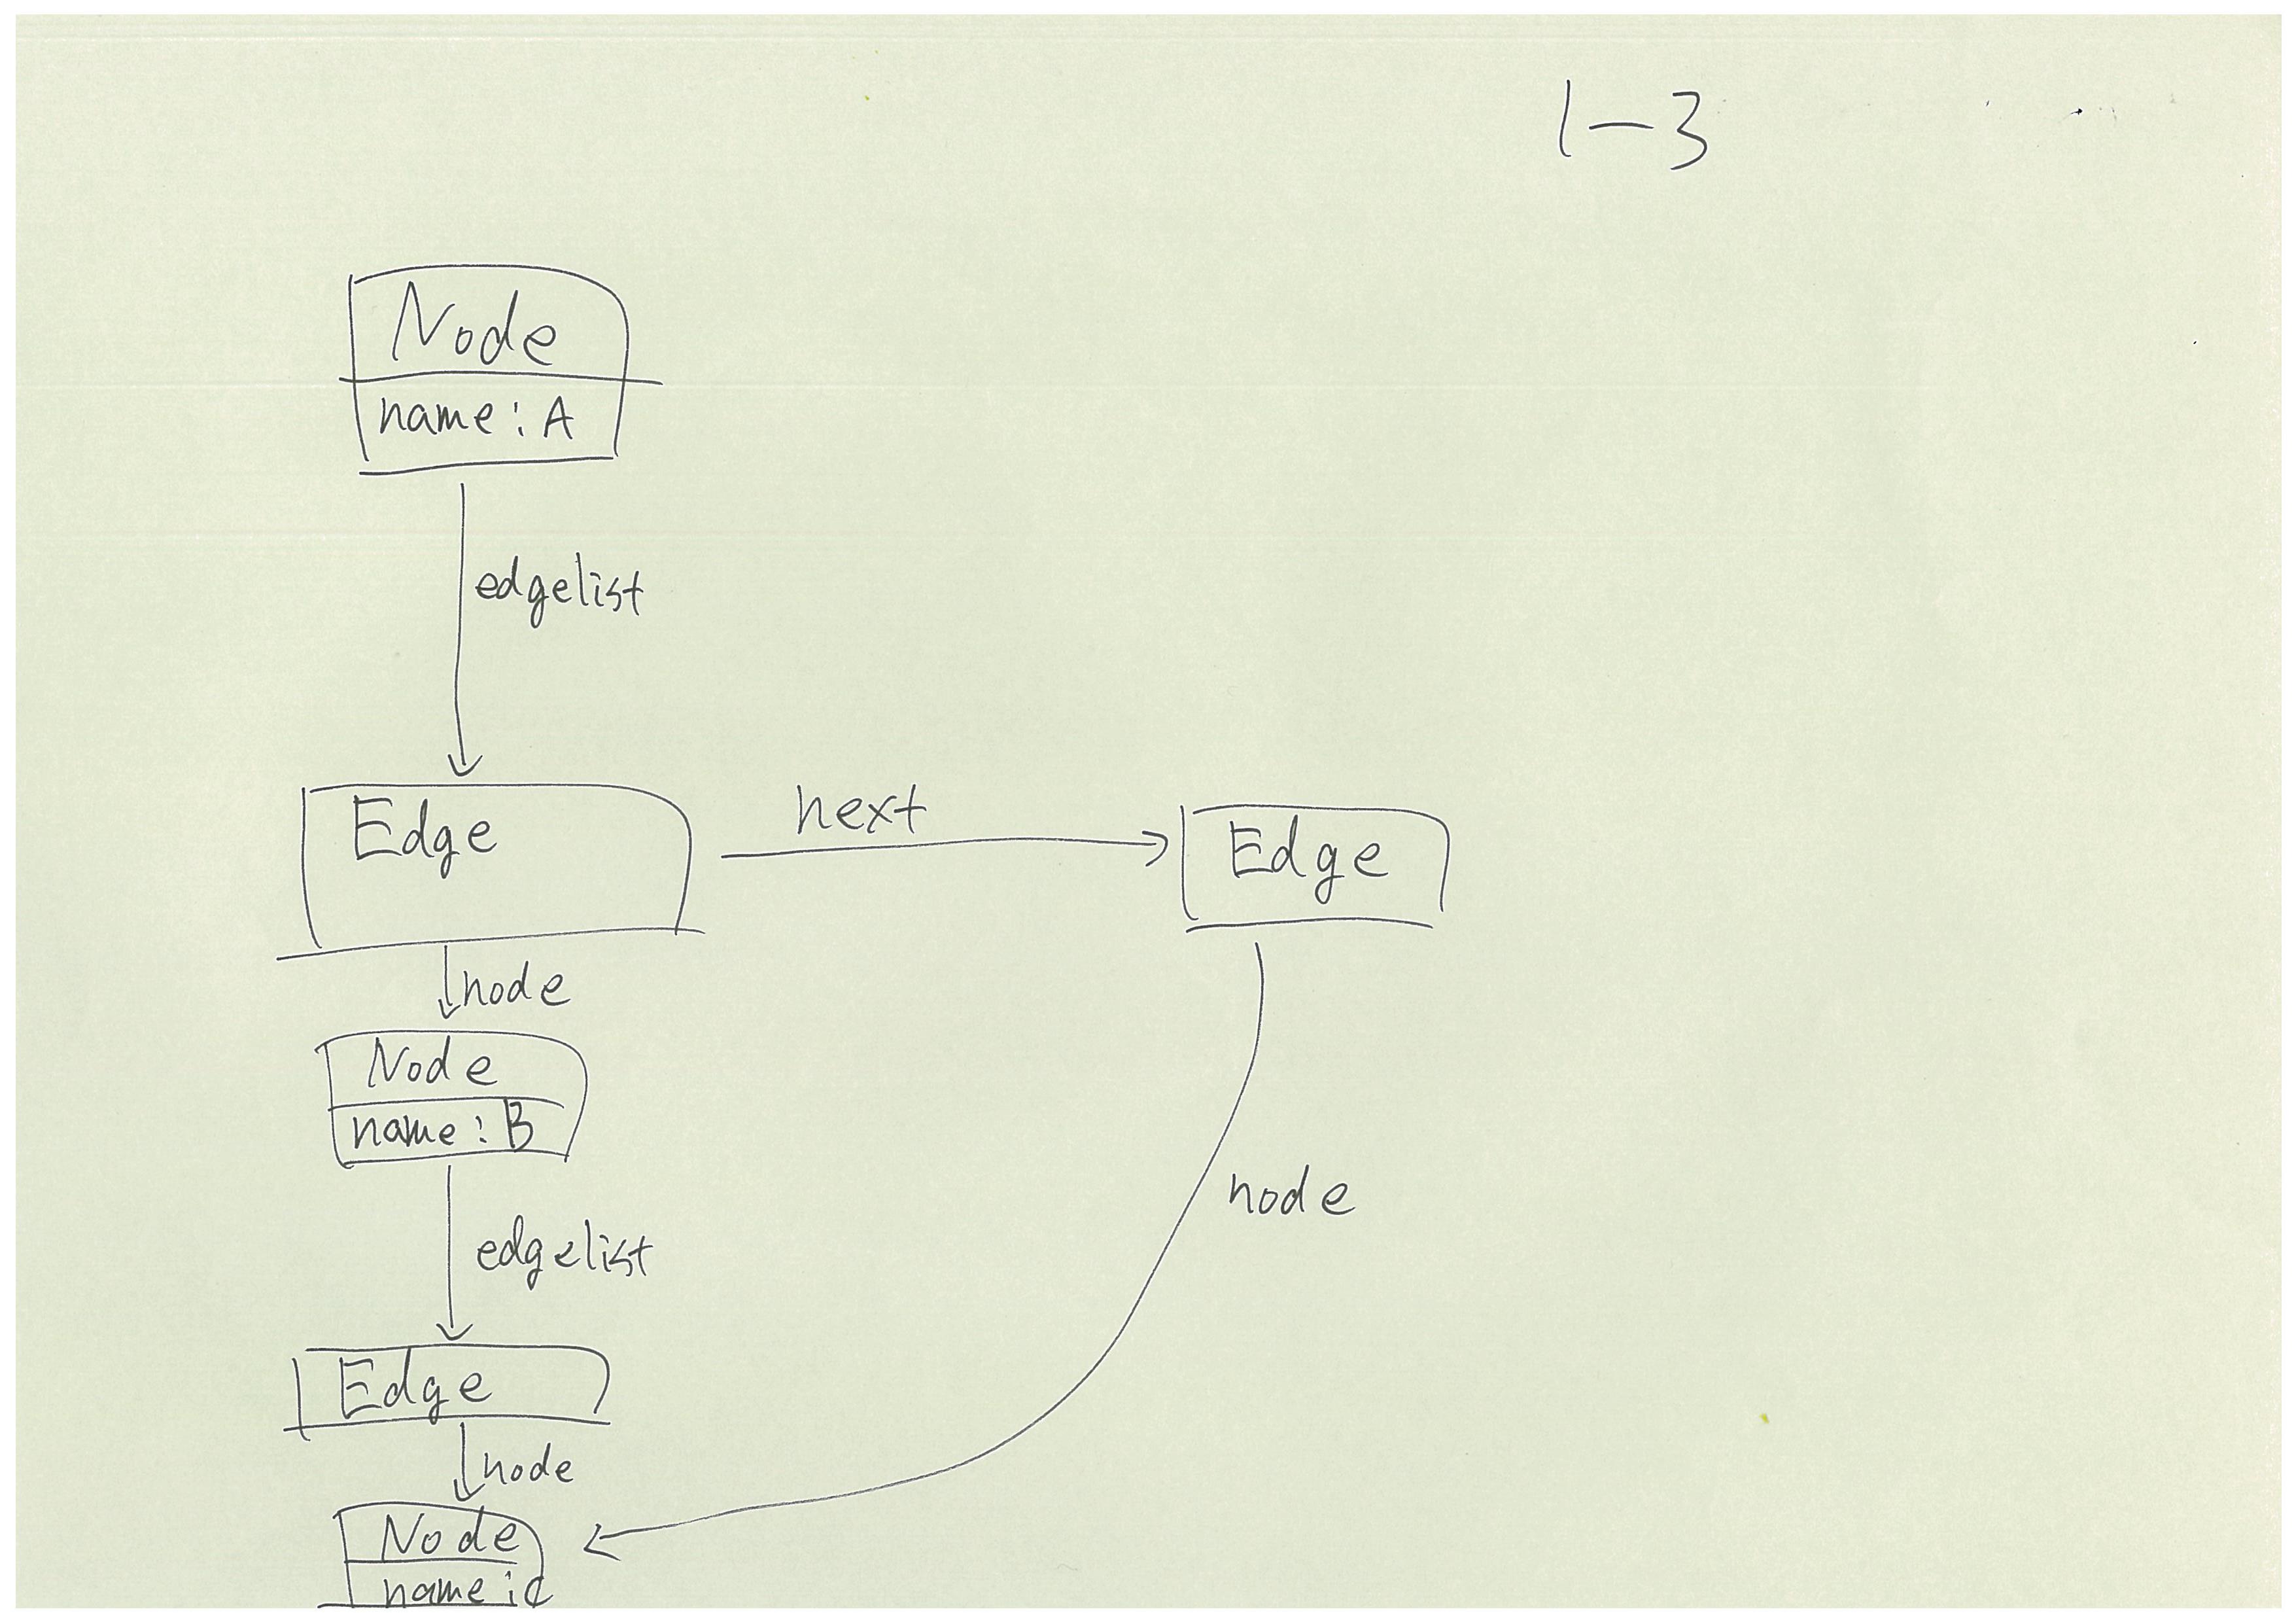 1-3
Node
name: A
edgelist
Edge
next
Edge
node
Node
name: B
node
edgelist
Edge
node
Node
name: C